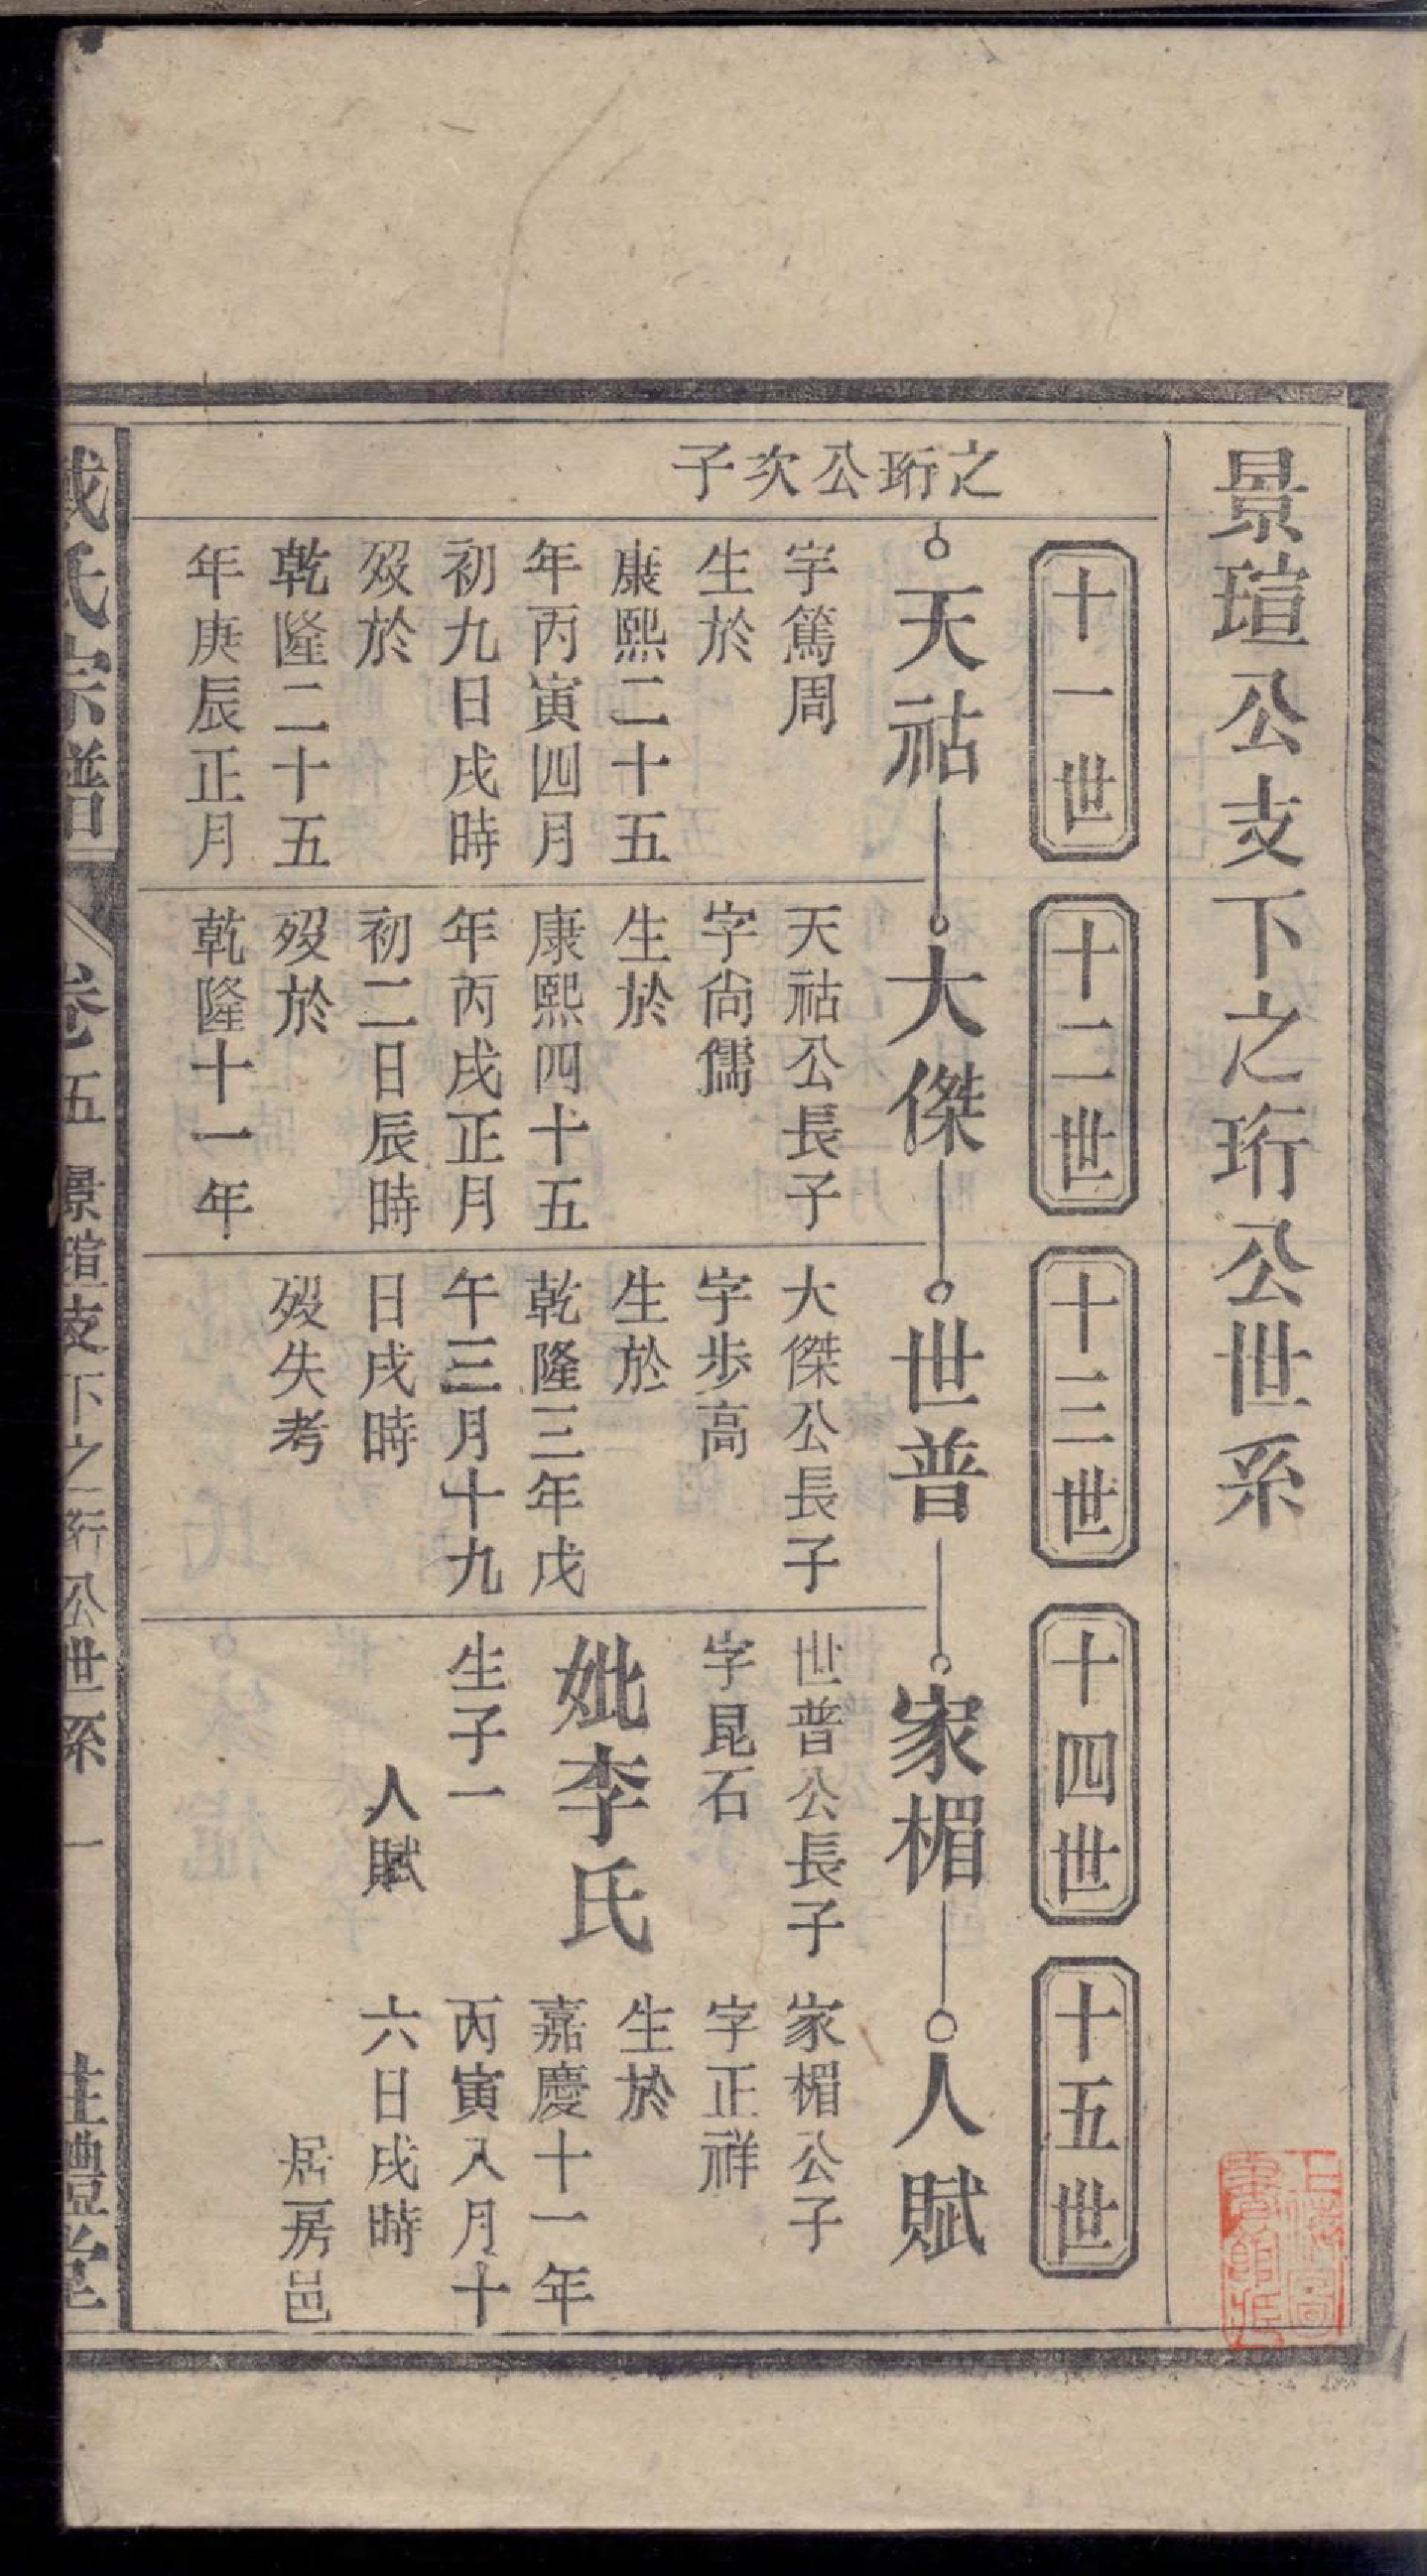 景瑄公支下之珩公世系
十一世
十二世
十三世
十四世
十五世
之珩公次子
天祜
字篤周
生於
康熙二十五
年丙寅四月
初九日戌時
歿於
乾隆二十五
年庚辰正月
大傑
天祜公長子
字尙儒
生於
康熙四十五
年丙戌正月
初二日辰時
歿於
乾隆十一年
世普
大傑公長子
字步高
生於
乾隆三年戊
午三月十九
日戌時
歿失考
家楣
世普公長子
字昆石
妣李氏
生子一
人賦
人賦
家楣公子
字正祥
生於
嘉慶十一年
丙寅入月十
六日戌時
居房邑
氏宗譜
卷五 景瑄支下之珩公世系 一
禮堂